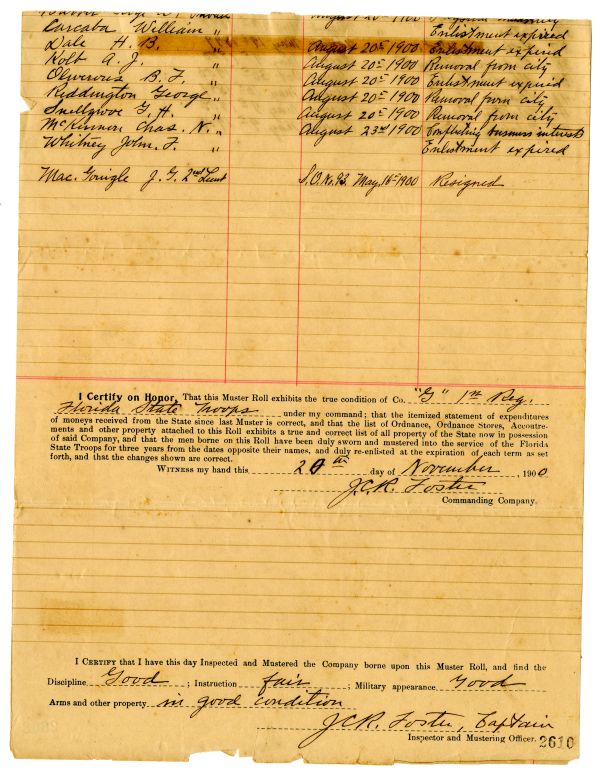 Carcaba William " Enlistment expired
Dale H. B. " August 20th 1900 Enlistment expired
Kolb A. J. " August 20th 1900 Removal from city
B. F. " August 20th 1900 Enlistment expired
Reddington George " August 20th 1900 Removal from city
Snellgrove G. H. " August 20th 1900 Removal from city
McKinnon Chas. N. " August 23rd 1900 Conflicting business interests
Whitney John. F. " Enlistment expired
Mac. Gonigle J. G. 2nd Lieut S.O. No. 93. May. 16th 1900 Resigned
I Certify on Honor, That this Muster Roll exhibits the true condition of Co. "G" 1st Reg.
Florida State Troops under my command; that the itemized statement of expenditures
of moneys received from the State since last Muster is correct, and that the list of Ordnance, Ordnance Stores, Accoutre-
ments and other property attached to this Roll exhibits a true and correct list of all property of the State now in possession
of said Company, and that the men borne on this Roll have been duly sworn and mustered into the service of the Florida
State Troops for three years from the dates opposite their names, and duly re-enlisted at the expiration of each term as set
forth, and that the changes shown are correct.
WITNESS my hand this 20th day of November, 1900
J.C.R. Foster
Commanding Company.
I CERTIFY that I have this day Inspected and Mustered the Company borne upon this Muster Roll, and find the
Discipline Good; Instruction fair; Military appearance Good
Arms and other property in good condition
J.C.R. Foster, Captain
Inspector and Mustering Officer.
2610